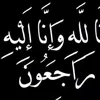 نَا لِلّٰهِ وَإِنَّا إِلَيْهِ
رَاجِعُونَ